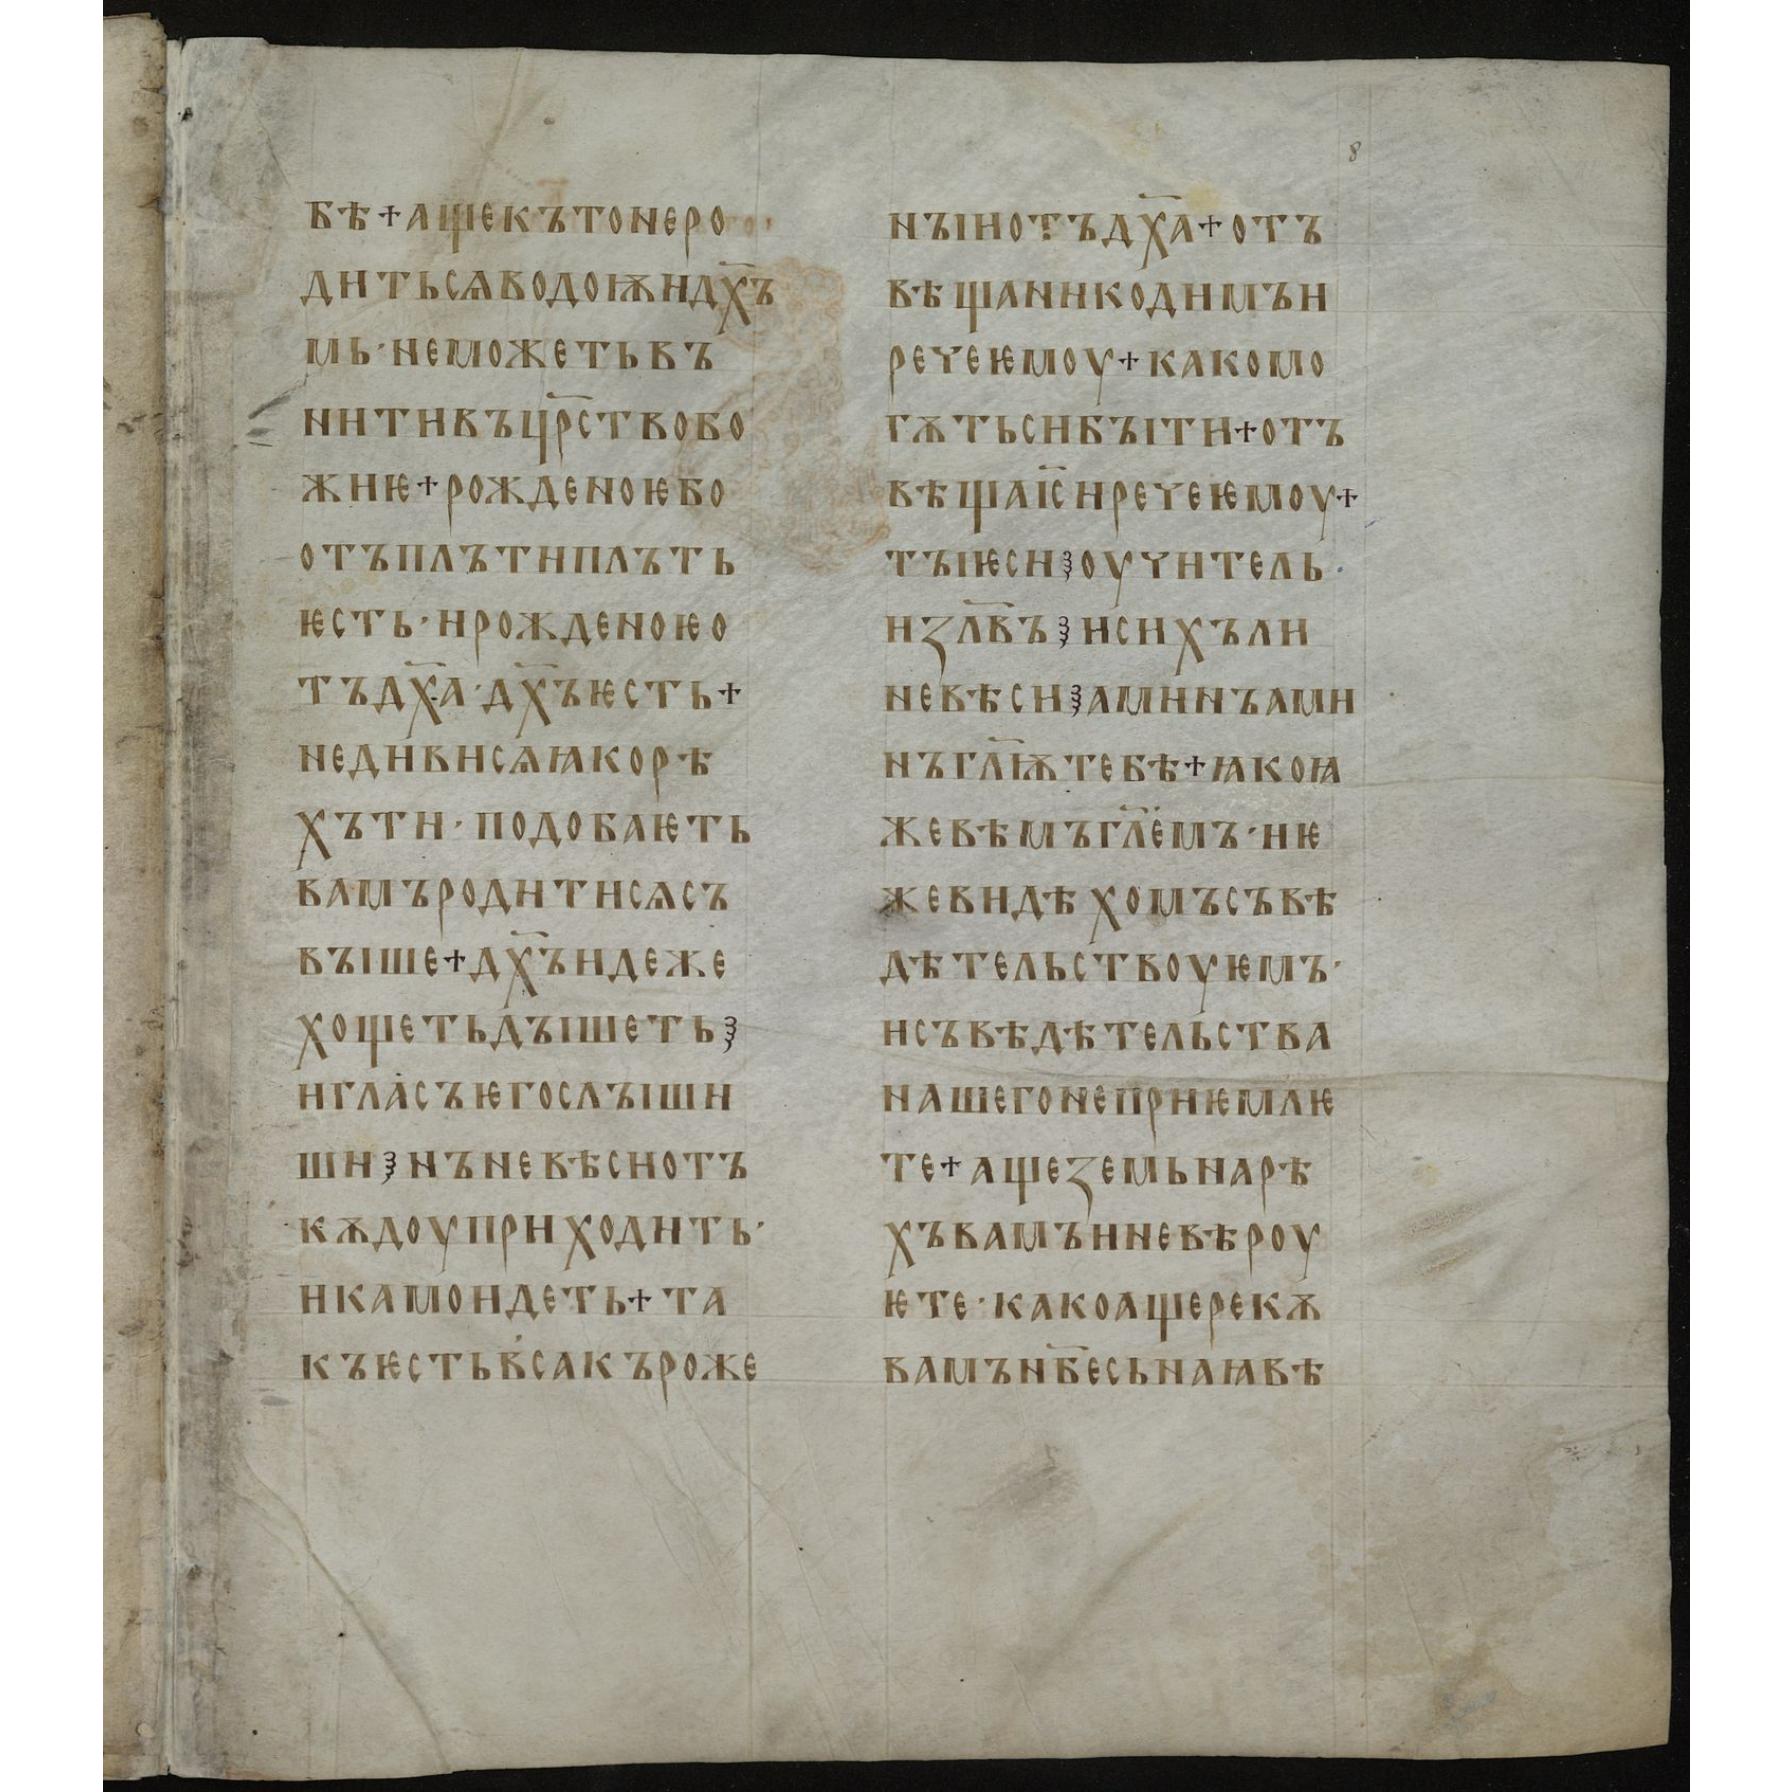 8
бѣ+ащекътонеро
дитьсѧводоѭидх҃ъ
мь·неможетьвъ
нитивъцр҃ствобо
жиѥ+рожденоѥбо
отъплътиплъть
ѥсть·ирожденоѥо
тъдх҃а·дх҃ъѥсть+
недивисѧꙗкорѣ
хъти·подобаѥть
вамъродитисѧсъ
въıше+дх҃ъидеже
хощетьдъıшеть⁏
игласъѥгослъıши
ши⁏нъневѣсиотъ
кѫдоуприходить·
икамоидеть+та
къѥстьвсакъроже
нъıиотъдх҃а+отъ
вѣщаникодимъи
речеѥмоу+какомо
гѫтьсибъıти+отъ
вѣщаіс҃иречеѥмоу+
тъıѥси⁏оучитель·
изл҃въ⁏исихъли
невѣси⁏аминъами
нъгл҃ѭтебѣ+ꙗкоꙗ
жевѣмъгл҃емъ·иѥ
жевидѣхомъсъвѣ
дѣтельствоуѥмъ·
исъвѣдѣтельства
нашегонеприѥмлѥ
те+ащеземьнарѣ
хъвамъиневѣроу
ѥте·какоащерекѫ
вамънб҃есьнаꙗвѣ